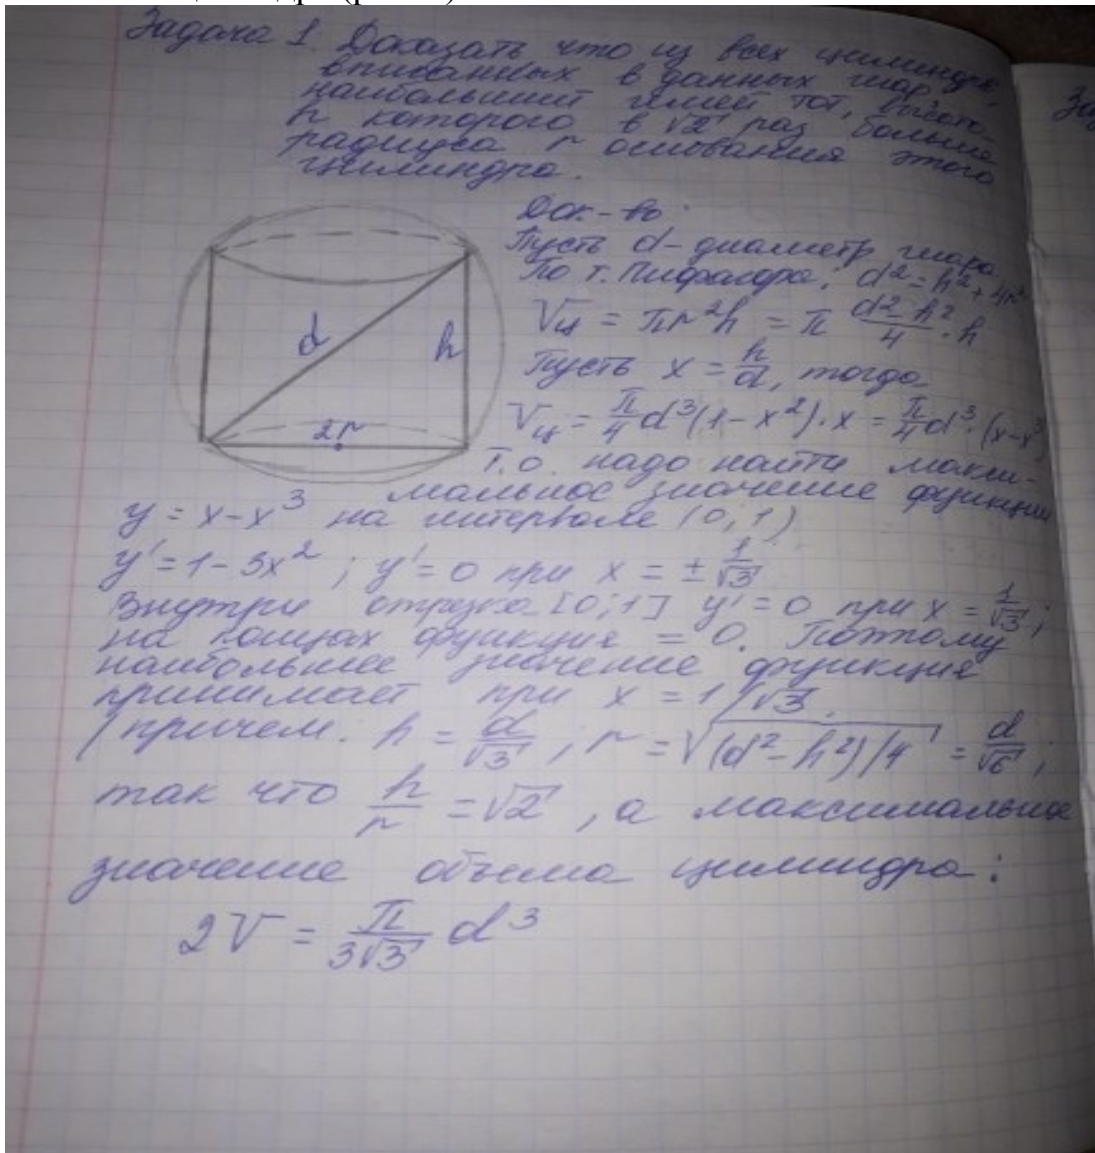 Задача 1. Доказать что из всех цилиндров,
вписанных в данных шар,
наибольший имеет тот, высота
h которого в √2 раз больше
радиуса r основания этого
цилиндра.
Док-во:
Пусть d - диаметр шара.
По т. Пифагора: d² = h² + 4r²
d
h
2r
Vц = πr²h = π (d² - h²)/4 · h
Пусть x = h/d, тогда
Vц = π/4 d³(1-x²)·x = π/4 d³·(x-x³)
Т.о. надо найти макси-
мальное значение функции
y = x - x³ на интервале (0;1)
y' = 1 - 3x² ; y' = 0 при x = ± 1/√3
Внутри отрезка [0;1] y' = 0 при x = 1/√3;
на концах функция = 0. Поэтому
наибольшее значение функция
принимает при x = 1/√3.
причем. h = d/√3 ; r = √((d² - h²)/4) = d/√6 ;
так что h/r = √2 , а максимальное
значение объема цилиндра:
2V = π/(3√3) d³